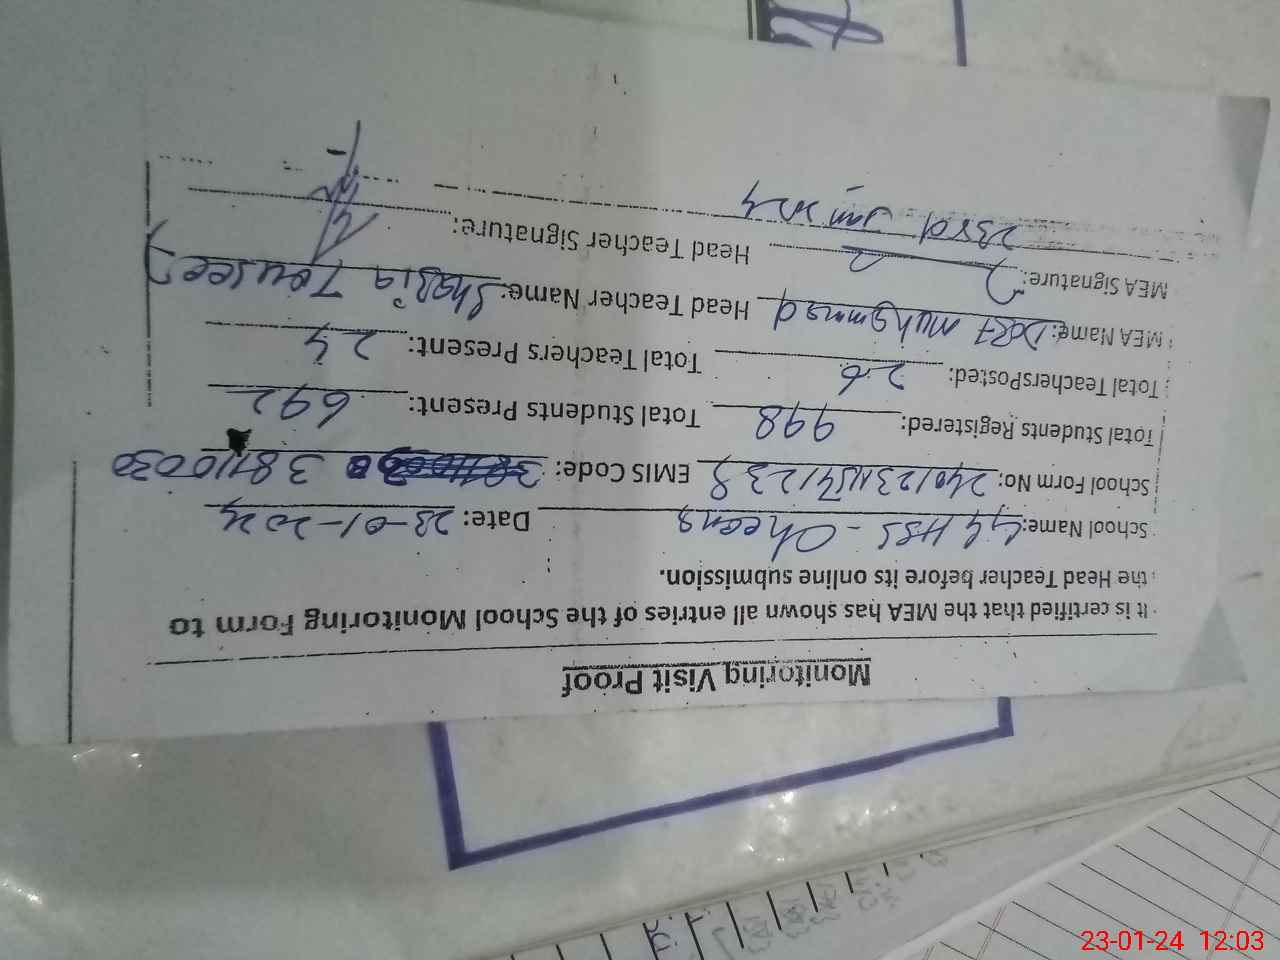 Monitoring Visit Proof
It is certified that the MEA has shown all entries of the School Monitoring Form to
the Head Teacher before its online submission.
School Name: GGHSS - Oheans Date: 23-01-2024
School Form No: EMIS Code: 38110030
Total Students Registered: 998 Total Students Present: 692
Total TeachersPosted: 26 Total Teachers Present: 24
MEA Name: Dost muhammad Head Teacher Name: Shazia Touseef
MEA Signature: Head Teacher Signature:
23rd Jan 2024
23-01-24 12:03